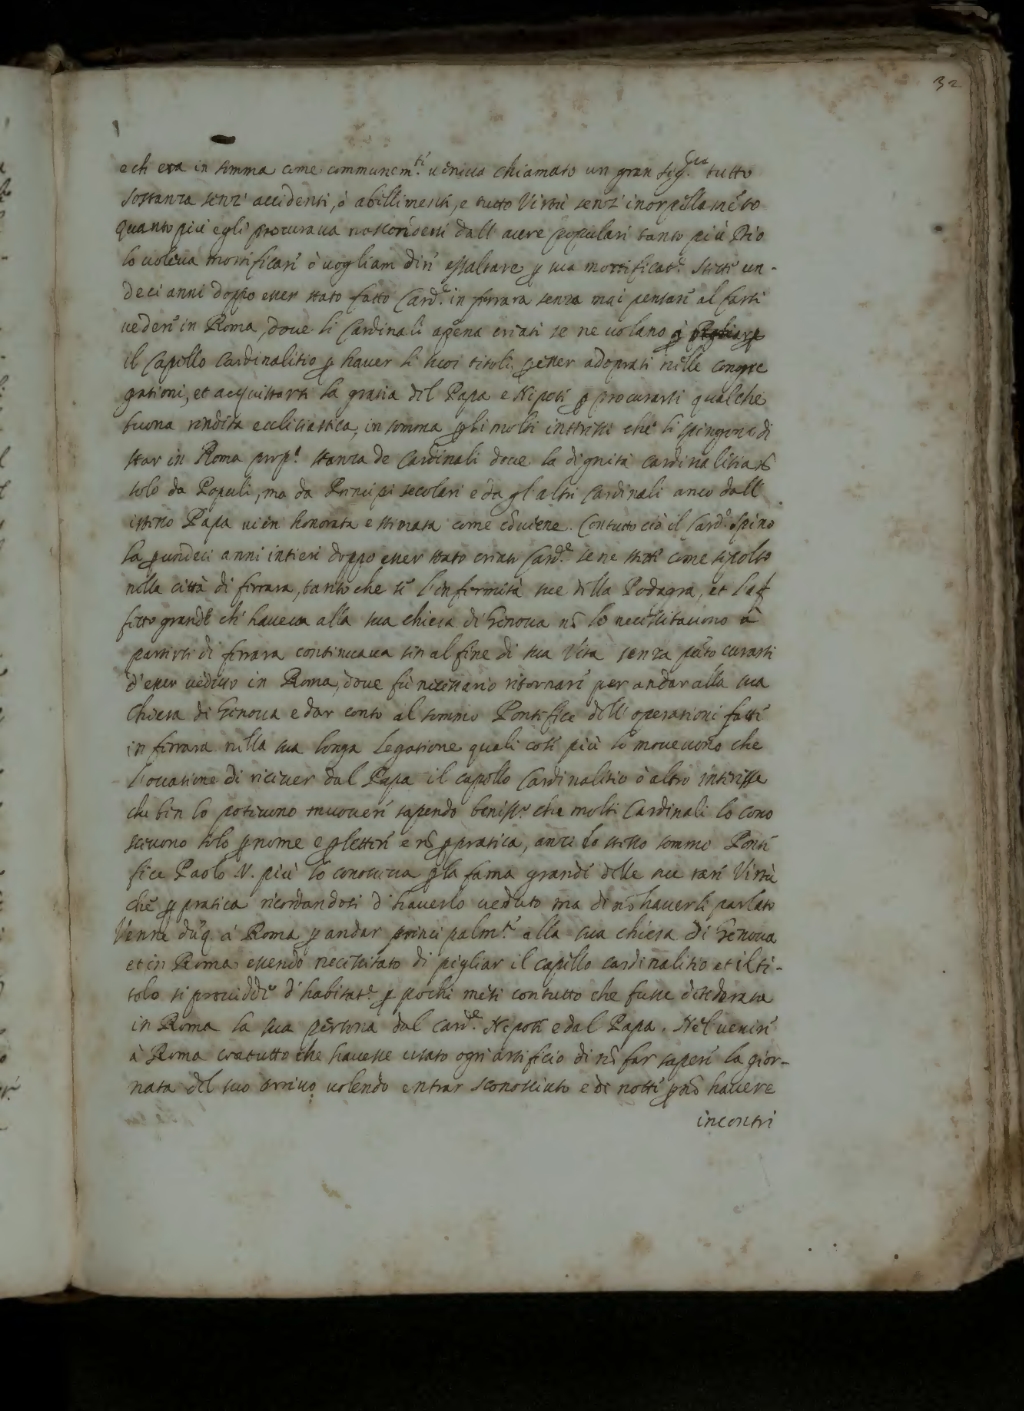 32
e ch era in somma come communem.te veniva chiamato un gran sig.re tutto
sostanza senz' accidenti, ò abillimenti, e tutto Virtù senz' inorpellamẽto
Quanto più egli procurava nascondersi dall aure populari tanto più Dio
lo voleva mortificari ò vogliam diri essaltare ꝑ sua mortificat.e Stette un-
deci anni doppo esser stato fatto Card.le in ferrara senza mai pensari al farsi
vederi in Roma, dove li Cardinali apena criati se ne volano ꝑ
il Capello Cardinalitio ꝑ haver li suoi titoli ꝑ esser adoprati nelle congre
gationi, et acquistarsi la gratia del Papa e Nipoti ꝑ procurarsi qualche
buona rendita ecclesiastica, in somma ꝑ li molti interessi che li spingono di
star in Roma prop.a stanza de Cardinali dove la dignità cardinalitia nõ
solo da Populi, ma da Principi secolari e da gl'altri Cardinali anco dall
istesso Papa vien honorata e stimata come conviene. Con tutto ciò il Card.le Spino
la ꝑ undeci anni intieri doppo esser stato criato Card.le se ne stette come sepolto
nella città di ferrara, tanto che se l'infermità sue della Podagra, et l'af
fetto grande ch' haveva alla sua chiesa di Genova nõ lo necessitavono à
partirsi di ferrara continuava sin al fine di sua Vita senza pũto curarsi
d'esser veduto in Roma, dove fù necessario ritornari per andar alla sua
Chiesa di Genova e dar conto al sommo Pontefice dell' operationi fatti
in ferrara nella sua longa Legatione quali cose più lo movevono che
l'occasione di ricever dal Papa il capello Cardinalitio ò altro interesse
che ben lo potevono muoveri sapendo beniss.o che molti Cardinali lo cono
scevono solo ꝑ nome e ꝑ letteri e nõ ꝑ pratica, anzi lo stesso sommo Ponte
fice Paolo V. più lo conosceva ꝑ la fama grandi delle sue rari Virtù
che ꝑ pratica ricordandosi d'haverlo veduto ma di nõ haverli parlato
Venne dũq à Roma ꝑ andar principalm.te alla sua chiesa di Genova
et in Roma essendo necessitato di pigliar il capello cardinalitio et il ti-
tolo si providdi d'habitat.e ꝑ pochi mesi con tutto che fusse desiderata
in Roma la sua persona dal Card.le Nipote e dal Papa. Nel veniri
à Roma contutto che havesse usato ogni artificio di nõ far saperi la gior-
nata del suo arrivo volendo entrar sconosciuto e di notte ꝑ nõ havere
incontri